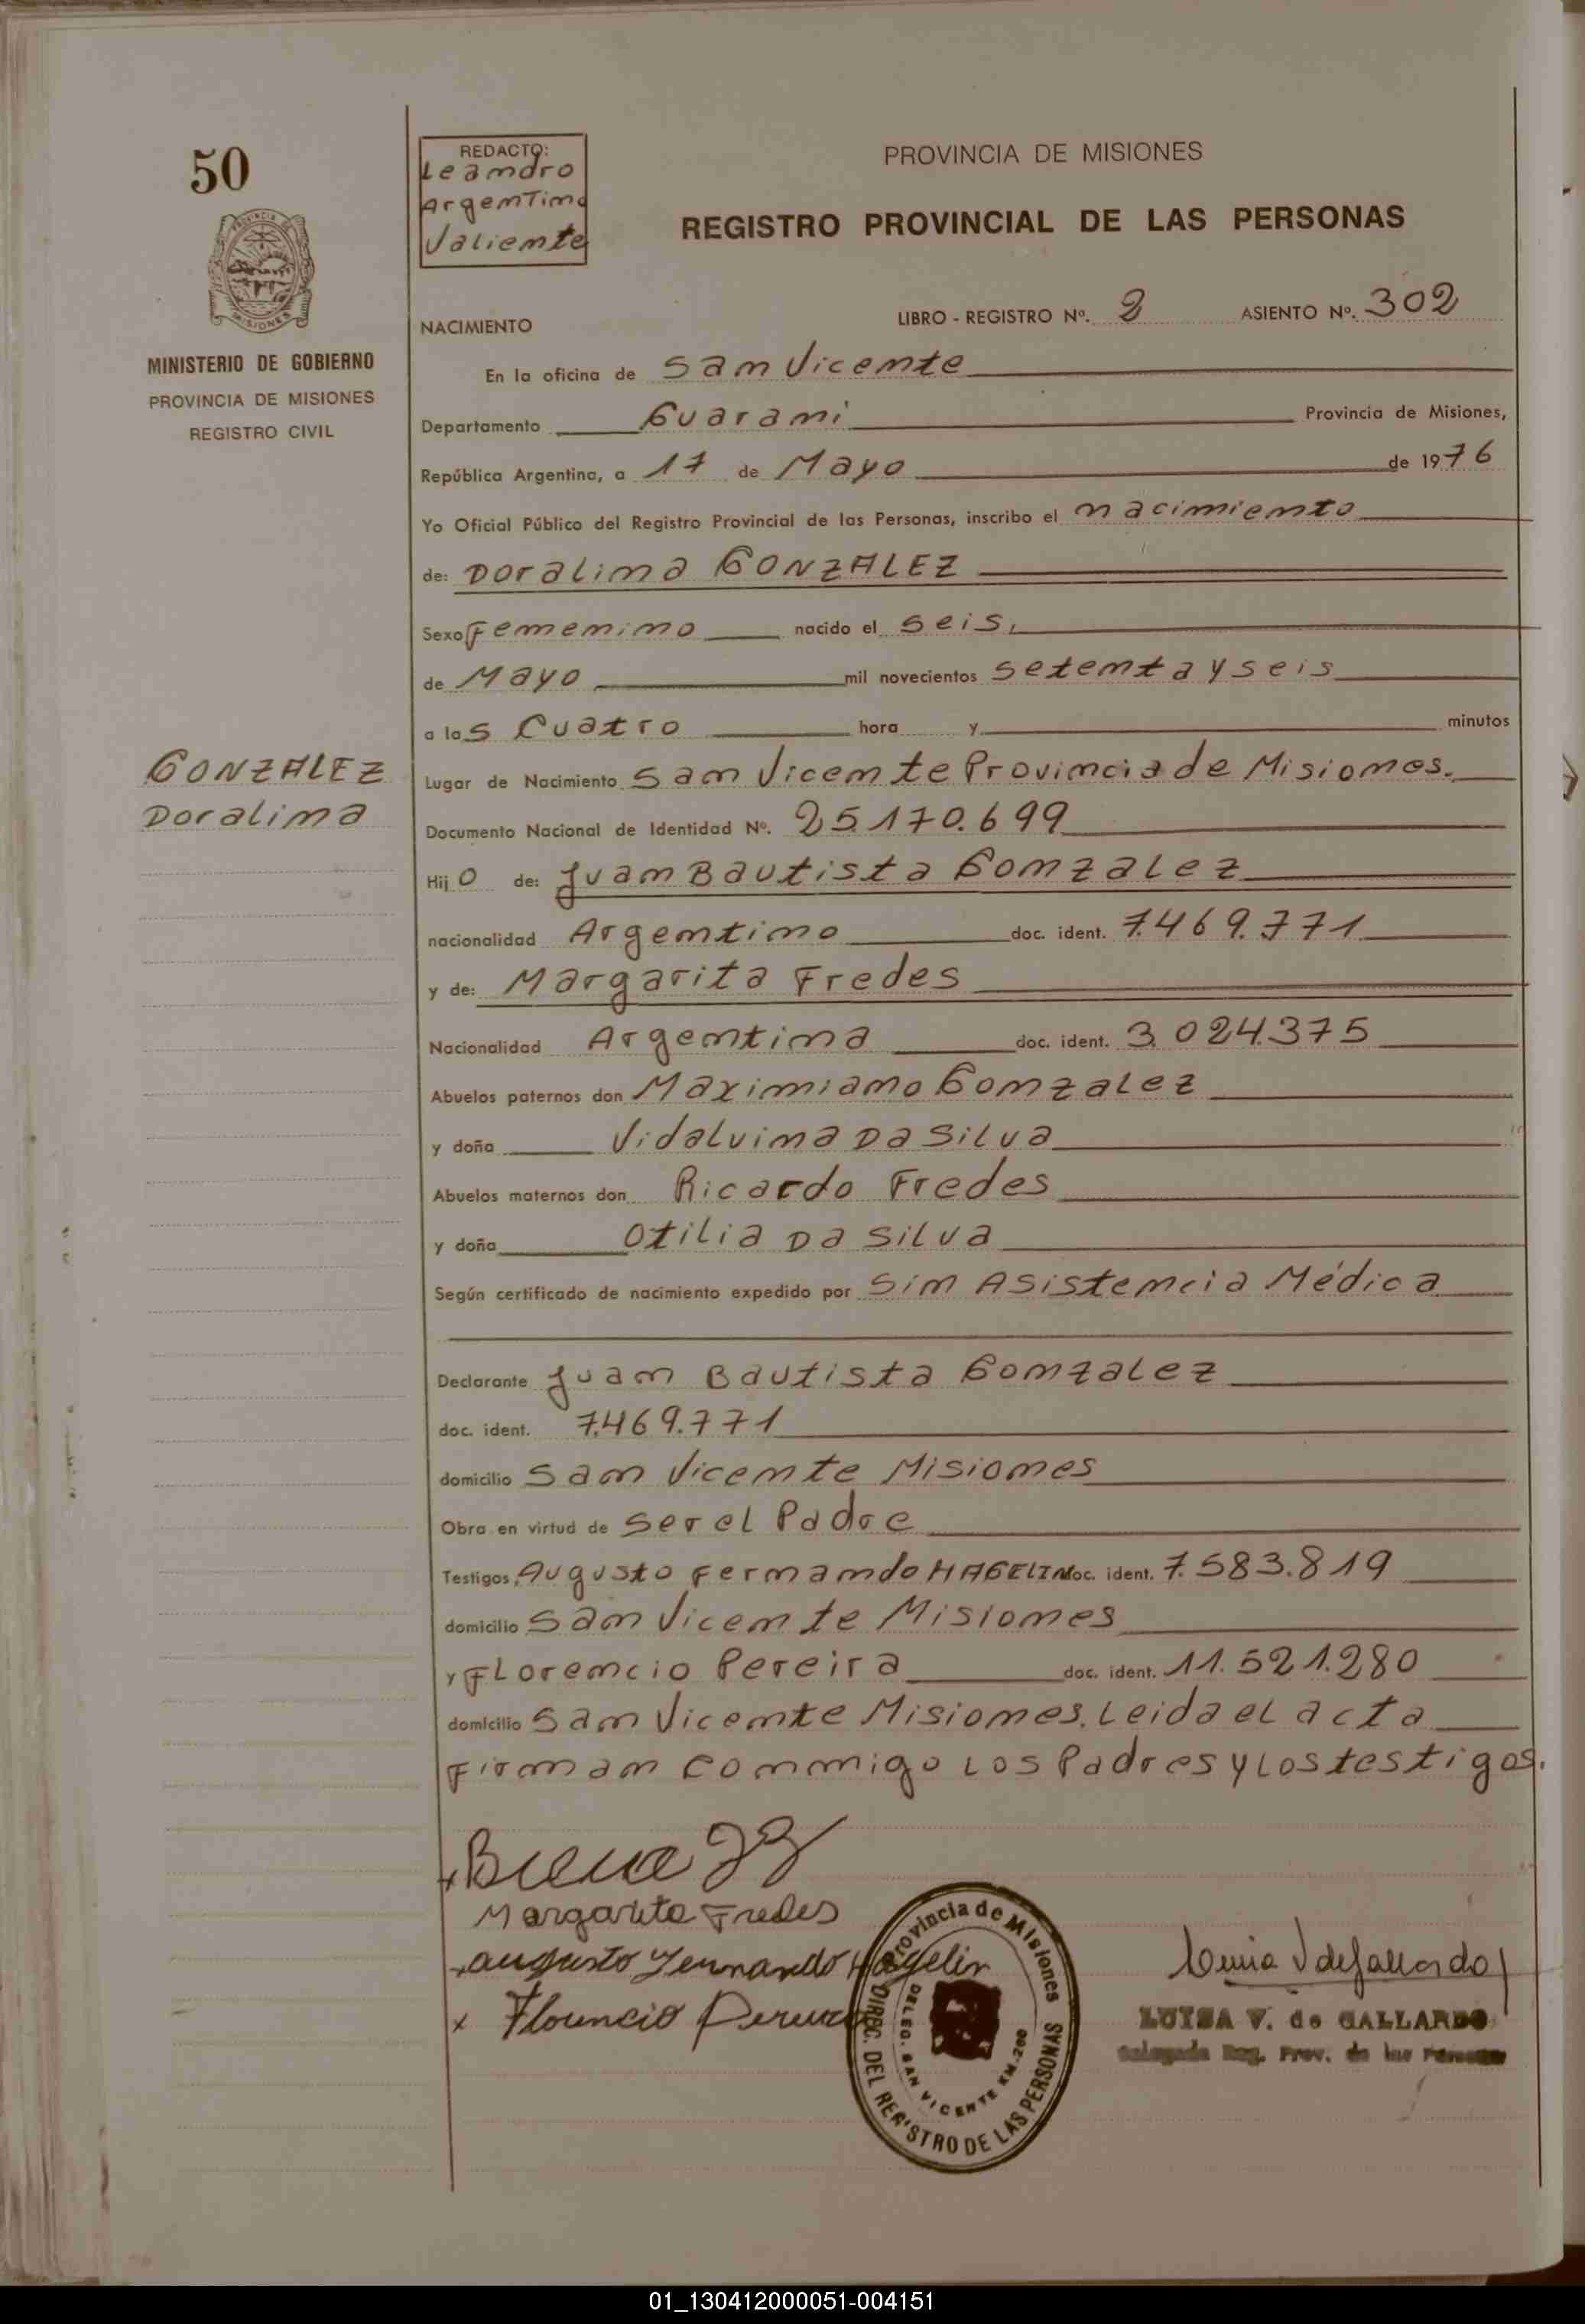 50
REDACTO:
Leandro
Argentino
Valiente
PROVINCIA DE MISIONES
REGISTRO PROVINCIAL DE LAS PERSONAS
PROVINCIA DE
MISIONES
MINISTERIO DE GOBIERNO
PROVINCIA DE MISIONES
REGISTRO CIVIL
NACIMIENTO
LIBRO - REGISTRO Nº. 2 ASIENTO Nº. 302
En la oficina de San Vicente
Departamento Guarani Provincia de Misiones,
República Argentina, a 17 de Mayo de 1976
Yo Oficial Público del Registro Provincial de las Personas, inscribo el nacimiento
de: Doralina GONZALEZ
Sexo Femenino nacido el seis,
de Mayo mil novecientos setenta y seis
a las cuatro hora y minutos
GONZALEZ
Doralina
Lugar de Nacimiento San Vicente Provincia de Misiones.
Documento Nacional de Identidad Nº. 25.170.699
Hij o de: Juan Bautista Gonzalez
nacionalidad Argentino doc. ident. 7.469.771
y de: Margarita Fredes
Nacionalidad Argentina doc. ident. 3.024.375
Abuelos paternos don Maximiano Gonzalez
y doña Vidalvina Da Silva
Abuelos maternos don Ricardo Fredes
y doña Otilia Da Silva
Según certificado de nacimiento expedido por Sin Asistencia Médica
Declarante Juan Bautista Gonzalez
doc. ident. 7.469.771
domicilio San Vicente Misiones
Obra en virtud de Ser el Padre
Testigos, Augusto Fernando HAGELIN doc. ident. 7.583.819
domicilio San Vicente Misiones
y Florencio Pereira doc. ident. 11.521.280
domicilio San Vicente Misiones. Leida el acta
Firman conmigo los Padres y los testigos.
Margarita Fredes
Augusto Fernando Hagelin
x Florencio Pereira
Provincia de Misiones
DIREC. DEL REGISTRO DE LAS PERSONAS
DELEG. SAN VICENTE KM. 200
Luisa V de Gallardo
LUISA V. de GALLARDO
Delegada Reg. Prov. de las Personas
01_130412000051-004151